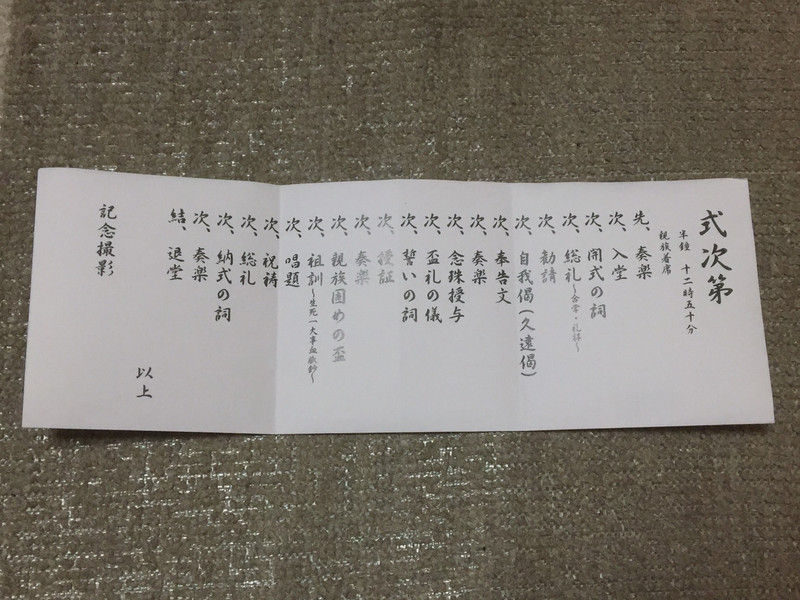 式次第
半鐘 十二時五十分
親族着席
先、奏楽
次、入堂
次、開式の詞
次、総礼～合掌・礼拝～
次、勧請
次、自我偈(久遠偈)
次、奉告文
次、奏楽
次、念珠授与
次、盃礼の儀
次、誓いの詞
次、授証
次、奏楽
次、親族固めの盃
次、祖訓～生死一大事血脈鈔～
次、唱題
次、祝祷
次、総礼
次、納式の詞
次、奏楽
結、退堂
以上
記念撮影